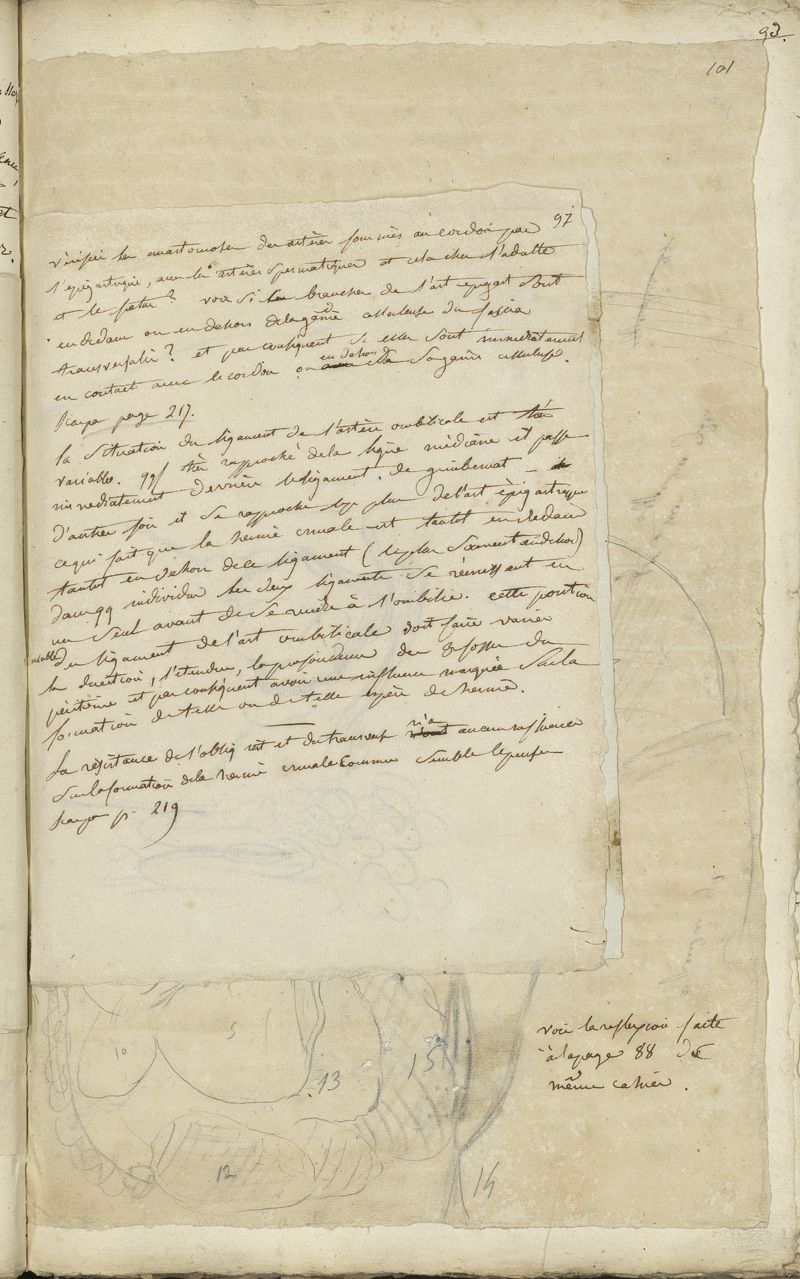 93.
101
97
vérifier les anastomoses des artères fournies au cordon par
l'épigastrique, avec les artères spermatiques et cela chez l'adulte
et le foetus ? voir si les branches de l'art épigast sont
en dedans ou en dehors de la gaine celluleuse du fascia
transversalis ? et par conséquent si elles sont immédiatement
en contact avec le cordon ou en dehors sa gaine celluleuse.
Scarpa page 217.
la situation du ligament de l'artère ombilicale est très
variable. qqf très rapproché de la ligne médiane il passe
immediatement derrière le ligament de gimbernat
d'autres fois il se rapproche plus de l'art épigastrique
ce qui fait que la hernie crurale est tantot en dedans
tantot en dehors de ce ligament (le plus souvent en dehors)
dans qq individus les deux ligaments se réunissent en
un seul avant de se rendre à l'ombilic. cette position
variable du ligament de l'art ombilicale doit faire varier
la direction, l'étendue, la profondeur des fosses du
péritoine et par conséquent avoir une influence marquée sur la
formation de telle ou de telle espèce de hernie.
La résistance de l'obliq et du transvers n'a aucune influence
sur la formation de la hernie crurale comme semble le penser
Scarpa p. 219
voir la reflexion faite
à la page 88 du
même cahier.
5
10
13
15
12
14